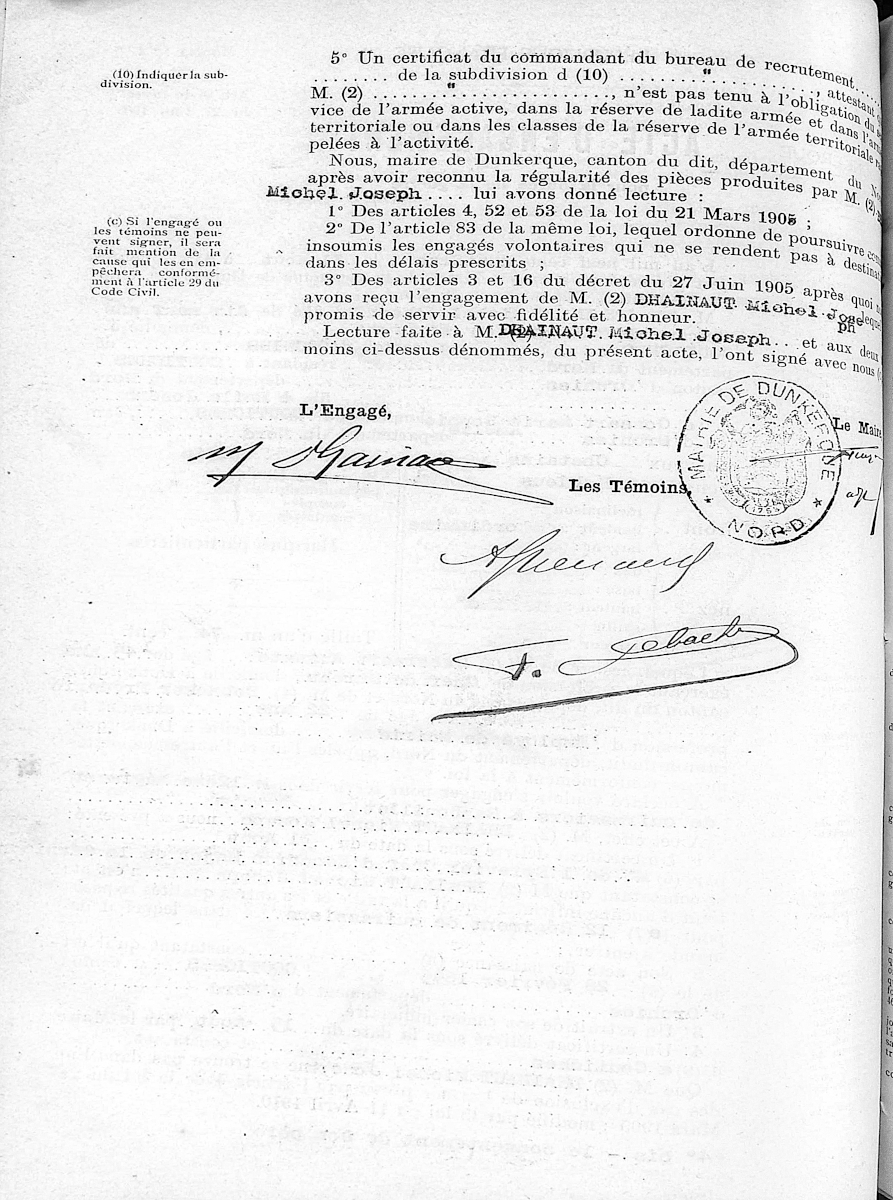 (10) Indiquer la sub-
division.
5° Un certificat du commandant du bureau de recrutement....
........ de la subdivision d (10) ........"............, attestant
M. (2) ........"................, n'est pas tenu à l'obligation du
vice de l'armée active, dans la réserve de ladite armée et dans l'
territoriale ou dans les classes de la réserve de l'armée territoriale
pelées à l'activité.
Nous, maire de Dunkerque, canton du dit, département du
après avoir reconnu la régularité des pièces produites par M. (2)
Michel Joseph .... lui avons donné lecture :
(c) Si l'engagé ou
les témoins ne peu-
vent signer, il sera
fait mention de la
cause qui les en em-
pêchera conformé-
ment à l'article 29 du
Code Civil.
1° Des articles 4, 52 et 53 de la loi du 21 Mars 1905 ;
2° De l'article 83 de la même loi, lequel ordonne de poursuivre
insoumis les engagés volontaires qui ne se rendent pas à
dans les délais prescrits ;
3° Des articles 3 et 16 du décret du 27 Juin 1905 après quoi
avons reçu l'engagement de M. (2) DHAINAUT Michel Jose
ph
promis de servir avec fidélité et honneur.
Lecture faite à M. (2) DHAINAUT Michel Joseph.. et aux deux
moins ci-dessus dénommés, du présent acte, l'ont signé avec nous
L'Engagé,
Le Maire
MAIRIE DE DUNKERQUE
* NORD *
Les Témoins,
F.